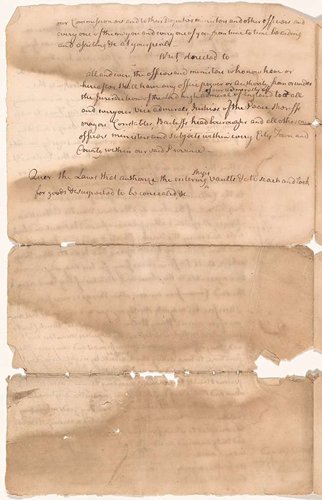 our Commissioners and to their Deputies ministers and other officers and
every one of them you and every one of you from time to time be aiding
and assisting &c as you respectively
Writ directed to
all and every the officers and ministers who now have or
hereafter shall have any office power or authority from or under
the Jurisdiction of the Lord high admiral of England to all
of our admiralty of
and every our Vice admirals Justices of the Peace Sheriffs
Constables Bailiffs headboroughs and all other our
officers ministers and subjects within every City Town and
County within our said Province
Quer the Laws that authorize the entering vaults &c to search and look
ships
for goods suspected to be concealed &c